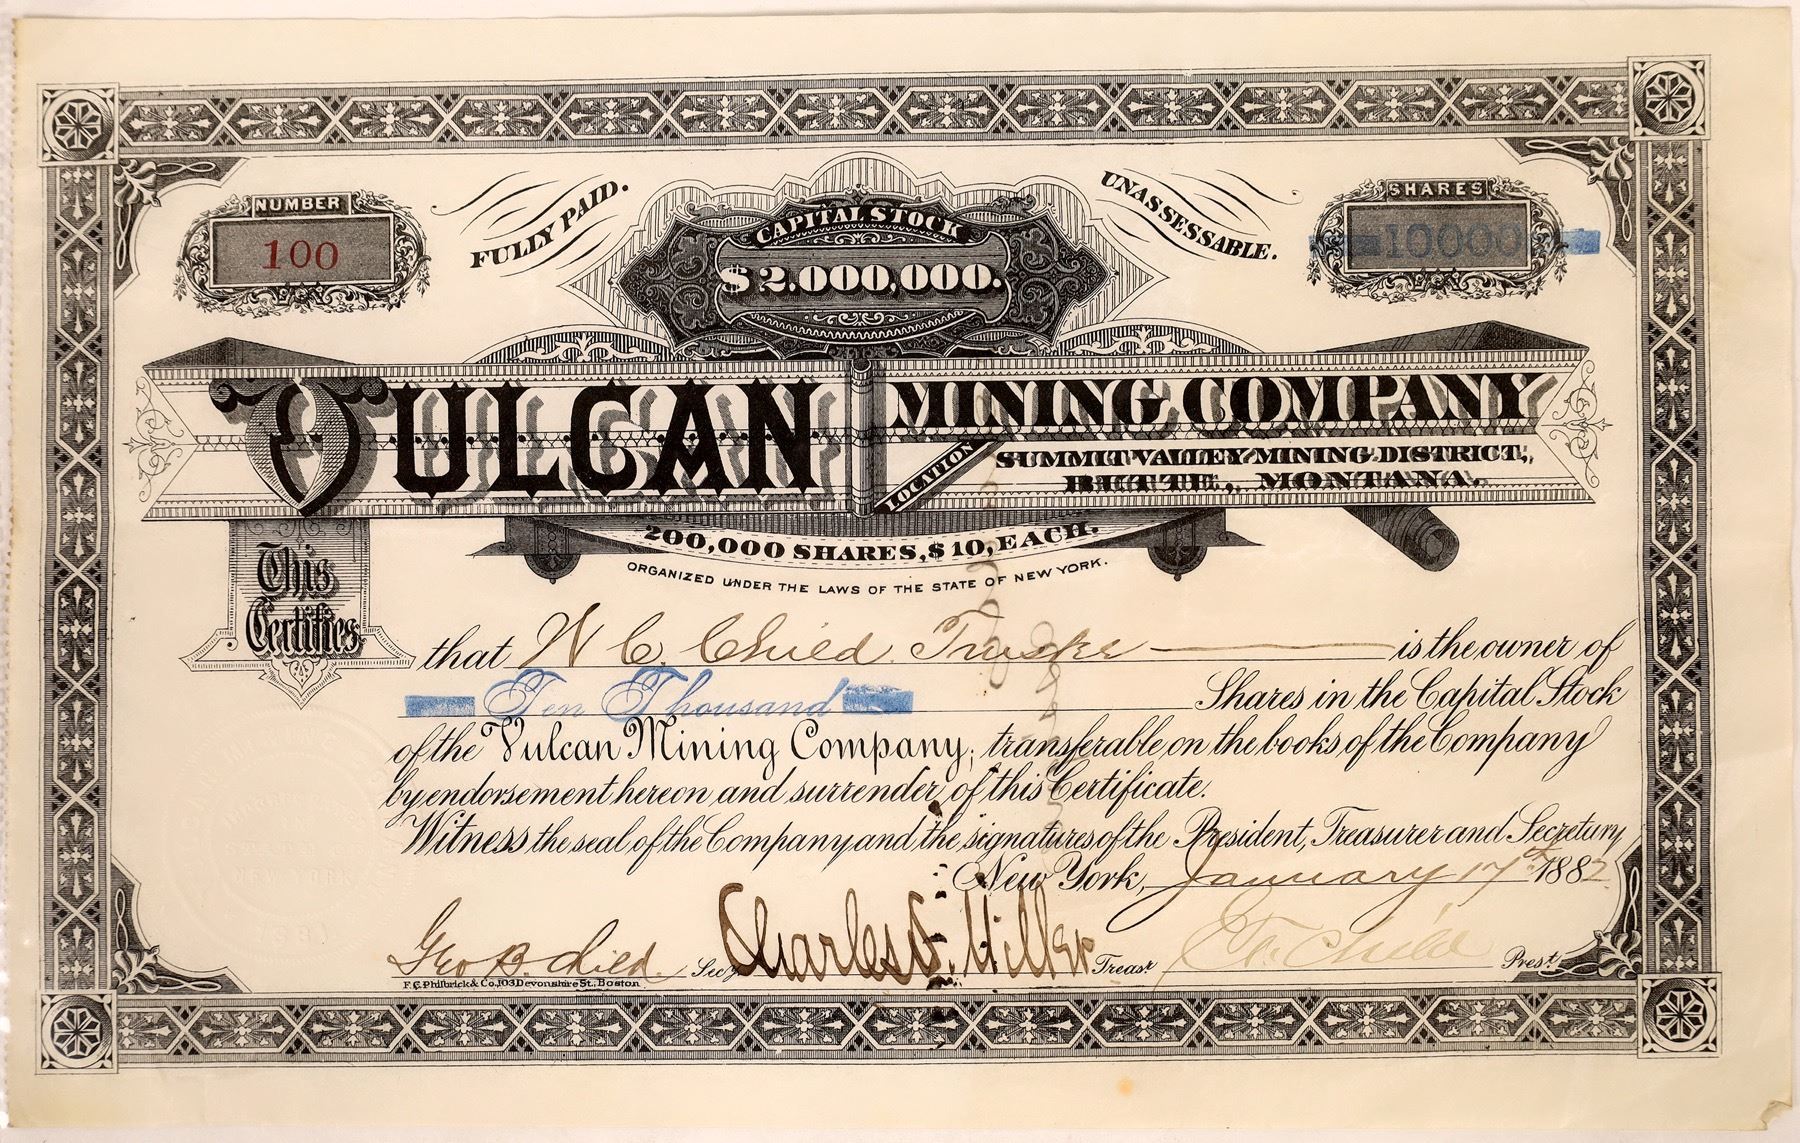 NUMBER
100
FULLY PAID.
CAPITAL STOCK
$2.000,000.
UNASSESSABLE.
SHARES
10000
VULCAN MINING COMPANY
LOCATION
SUMMIT VALLEY MINING DISTRICT,
BUTTE, MONTANA.
200,000 SHARES, $10, EACH.
ORGANIZED UNDER THE LAWS OF THE STATE OF NEW YORK.
This Certifies
that W C. Child Trustee is the owner of
Ten Thousand Shares in the Capital Stock
of the Vulcan Mining Company, transferable on the books of the Company
by endorsement hereon and surrender of this Certificate.
Witness the seal of the Company and the signatures of the President, Treasurer and Secretary
New York, January 17th 1882
Geo B. Child. Secy Charles S. Hiller Treasr Child Prest.
F.C. Philbrick & Co., 103 Devonshire St., Boston
NEW YORK
1881